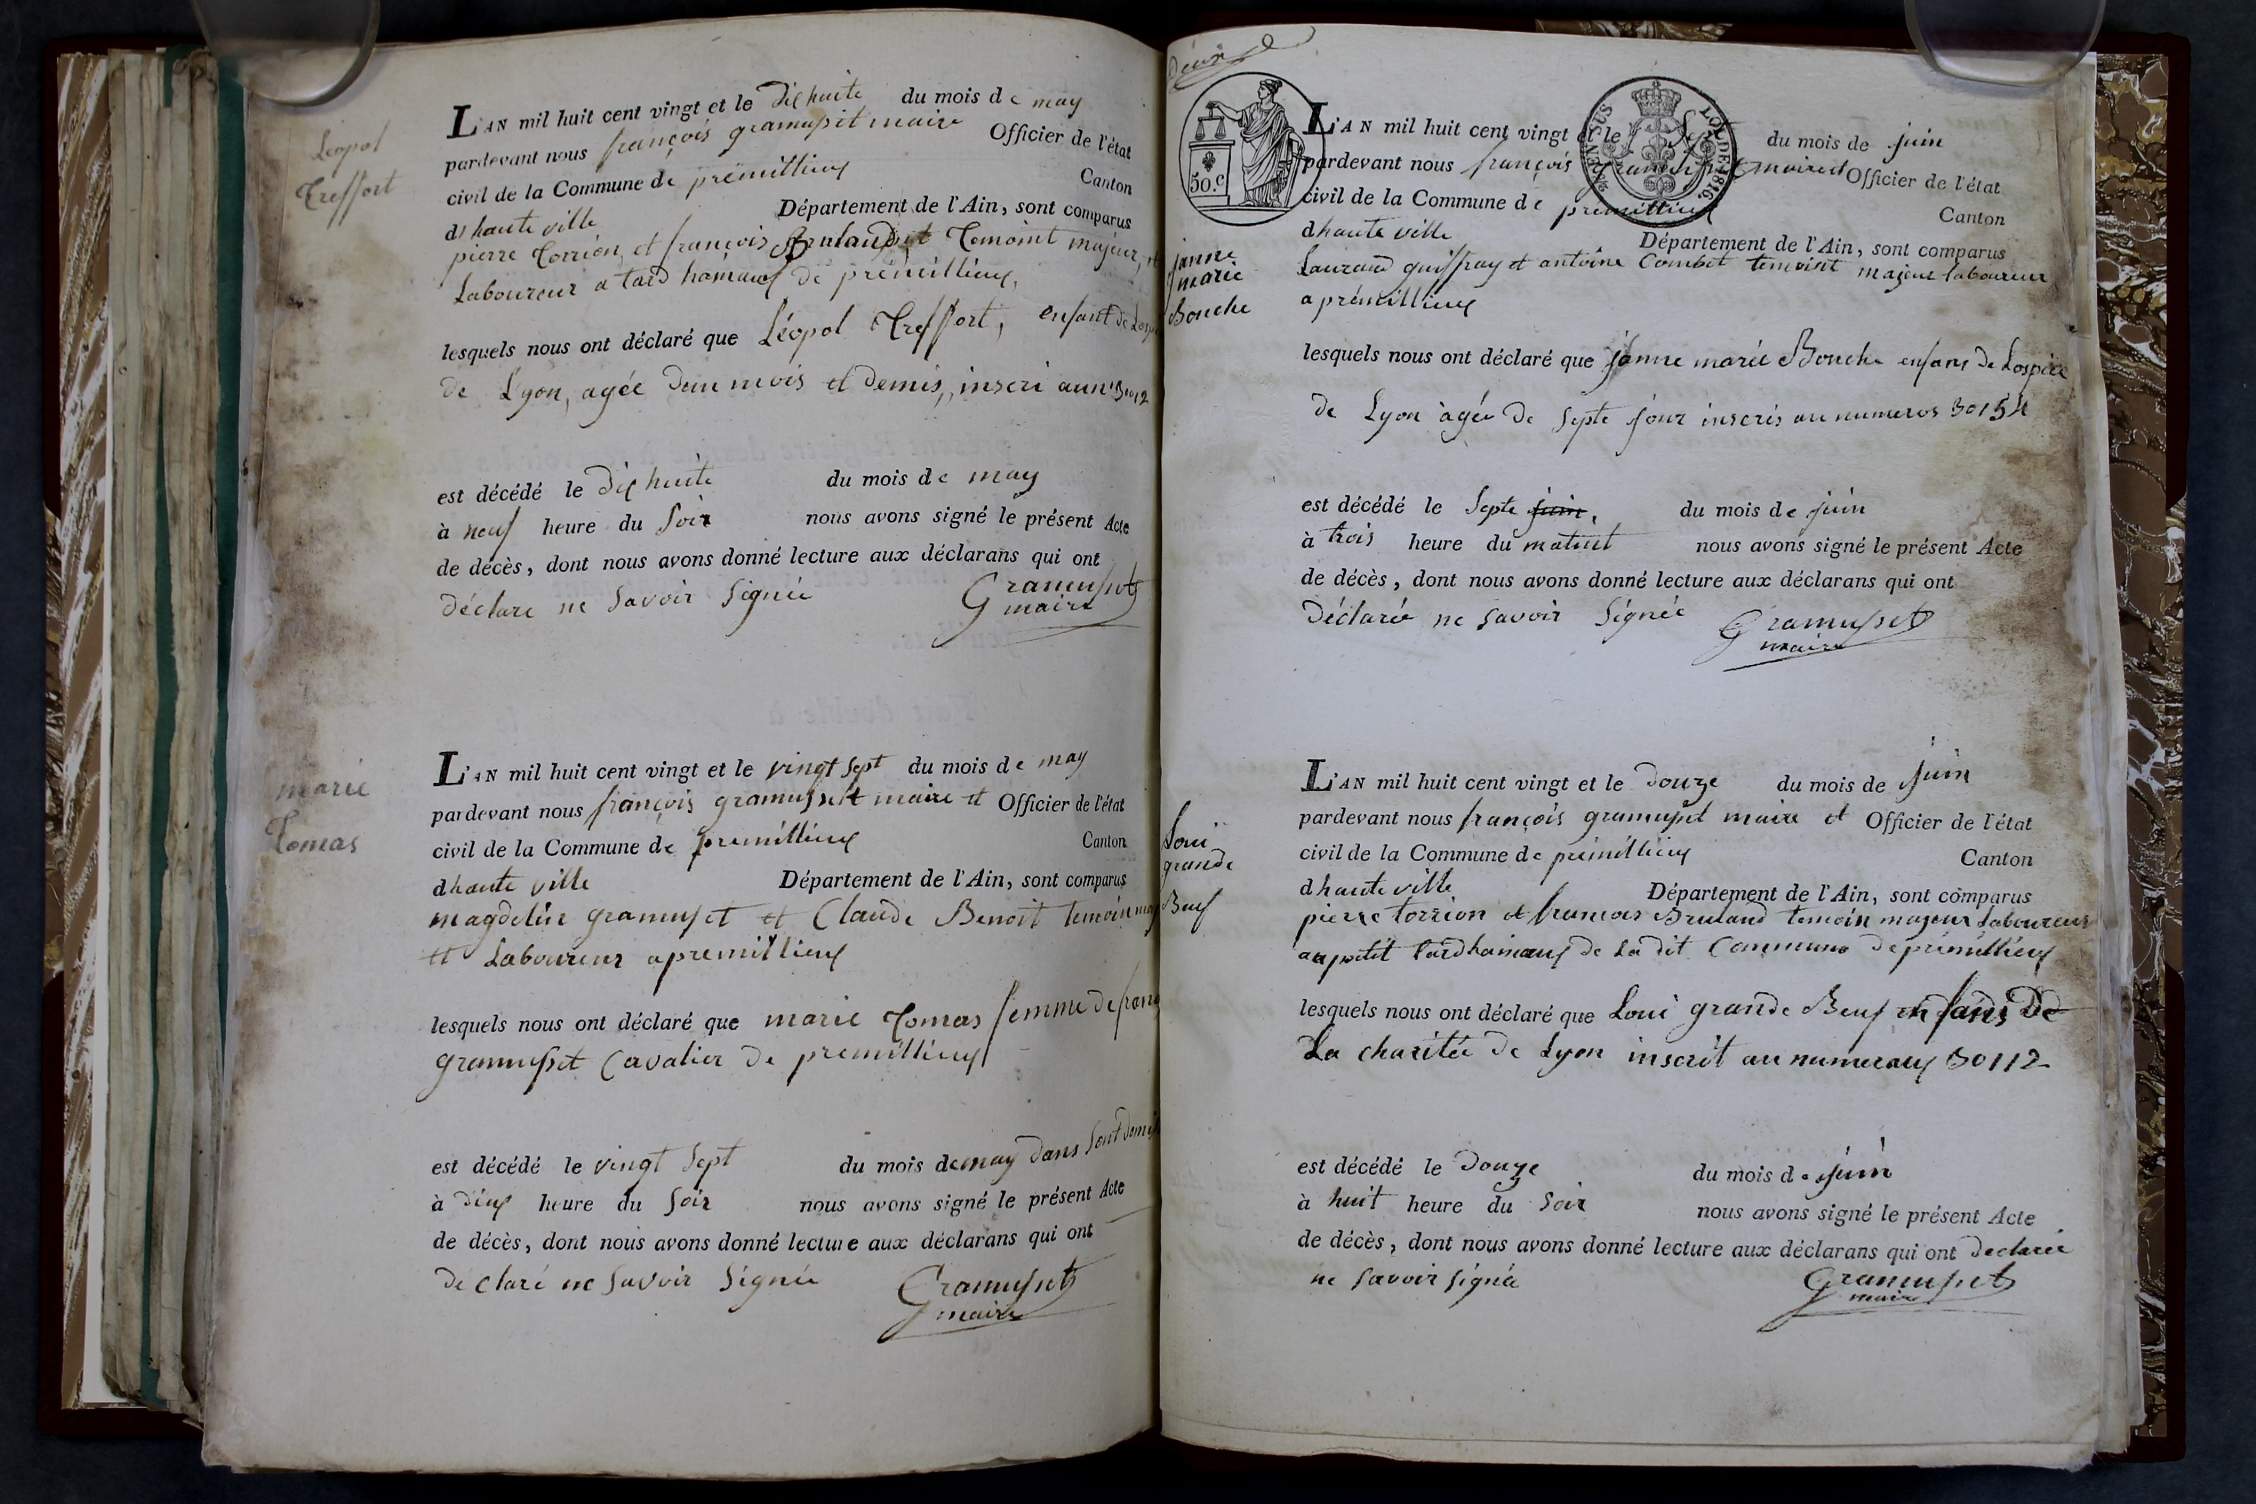 Léopol
Treffort
L'AN mil huit cent vingt et le dix huite du mois de may
pardevant nous françois gramusset maire Officier de l'état
civil de la Commune de premillieux Canton
dhaute ville Département de l'Ain, sont comparus
pierre Torrion et françois Bruland et Temoint majeur, et
Laboureur a tard homaux de prémillieux,
lesquels nous ont déclaré que Léopol Treffort, enfant de Losp
de Lyon, agée dun mois et demis, inscri au n°
est décédé le dix huite du mois de may
à neuf heure du Soir nous avons signé le présent Acte
de décès, dont nous avons donné lecture aux déclarans qui ont
déclare ne Savoir Signée Gramusset
maire
marie
Tomas
L'AN mil huit cent vingt et le vingt Sept du mois de may
pardevant nous françois gramusset maire et Officier de l'état
civil de la Commune de premillieux Canton
dhaute ville Département de l'Ain, sont comparus
magdelin gramuset et Claude Benoit temoin maj
et Laboureur a premillieux
lesquels nous ont déclaré que marie Tomas femme de franç
gramusset Cavalier de premillieux
est décédé le vingt Sept du mois de may dans Sont domis
à dieux heure du Soir nous avons signé le présent Acte
de décès, dont nous avons donné lecture aux déclarans qui ont
declaré ne Savoir Signée Gramusset
maire
50.C
LOI DE 1816.
janne
marie
Bouche
L'AN mil huit cent vingt et le Sept du mois de juin
pardevant nous françois gramusset maire et Officier de l'état
civil de la Commune de premillieux Canton
dhaute ville Département de l'Ain, sont comparus
Laurand guiffray et antoine Combet temoint majeur laboureur
a prémillieux
lesquels nous ont déclaré que janne marie Bouche enfans de Lospice
de Lyon agée de Septe jour inscris au numeros 30154
est décédé le Septe juin, du mois de juin
à trois heure du matint nous avons signé le présent Acte
de décès, dont nous avons donné lecture aux déclarans qui ont
déclarée ne Savoir Signée Gramusset
maire
Loui
grande
Beuf
L'AN mil huit cent vingt et le Douze du mois de juin
pardevant nous françois gramuset maire et Officier de l'état
civil de la Commune de prémillieux Canton
dhaute ville Département de l'Ain, sont comparus
pierre torrion et francois Bruland temoin majeur Laboureur
au petit tardhomaux de La dit Commune de prémillieux
lesquels nous ont déclaré que Loui grande Beuf enfans De
La charitée de Lyon inscrit au numeraux 30112
est décédé le Douze du mois de juin
à huit heure du Soir nous avons signé le présent Acte
de décès, dont nous avons donné lecture aux déclarans qui ont declarée
ne Savoir Signée Gramusset
maire